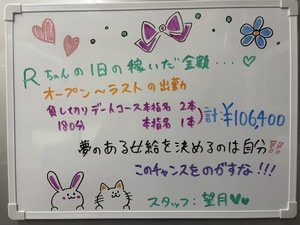 Rちゃんの1日の稼いだ金額...♡
オープン〜ラストの出勤
貸し切りデートコース本指名 2本
180分 本指名 1本
計:¥106,400
夢のある女給を決めるのは自分!!
このチャンスをのがすな!!!
スタッフ:望月♡♡